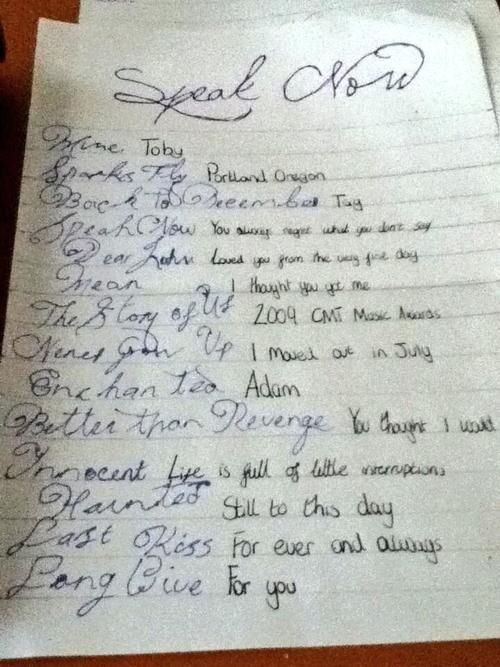 Speak Now
Mine Toby
Sparks Fly Portland Oregon
Back To December Tay
Speak Now You always regret what you don't say
Dear John Loved you from the very first day
Mean I thought you got me
The Story of Us 2009 CMT Music Awards
Never Grow Up I moved out in July
Enchanted Adam
Better than Revenge You thought I would
Innocent Life is full of little interruptions
Haunted Still to this day
Last Kiss For ever and always
Long Live For you